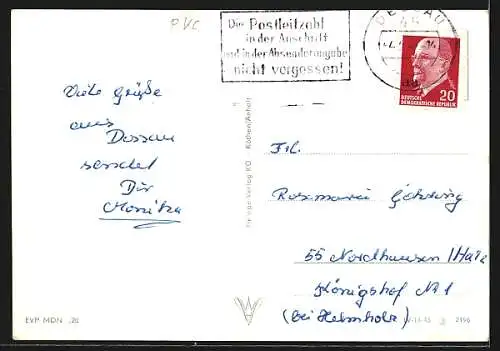 PVC
Die Postleitzahl
in der Anschrift
und in der Absenderangabe
nicht vergessen!
DESSAU
45
20
DEUTSCHE
DEMOKRATISCHE REPUBLIK
Viele Grüße
aus
Dessau
sendet
Dir
Monika
Verlag KG Köthen/Anhalt
Frl.
Rosemarie
55 Nordhausen/Harz
Königshof Nr 1
(bei Helmholz)
EVP MDN -,20